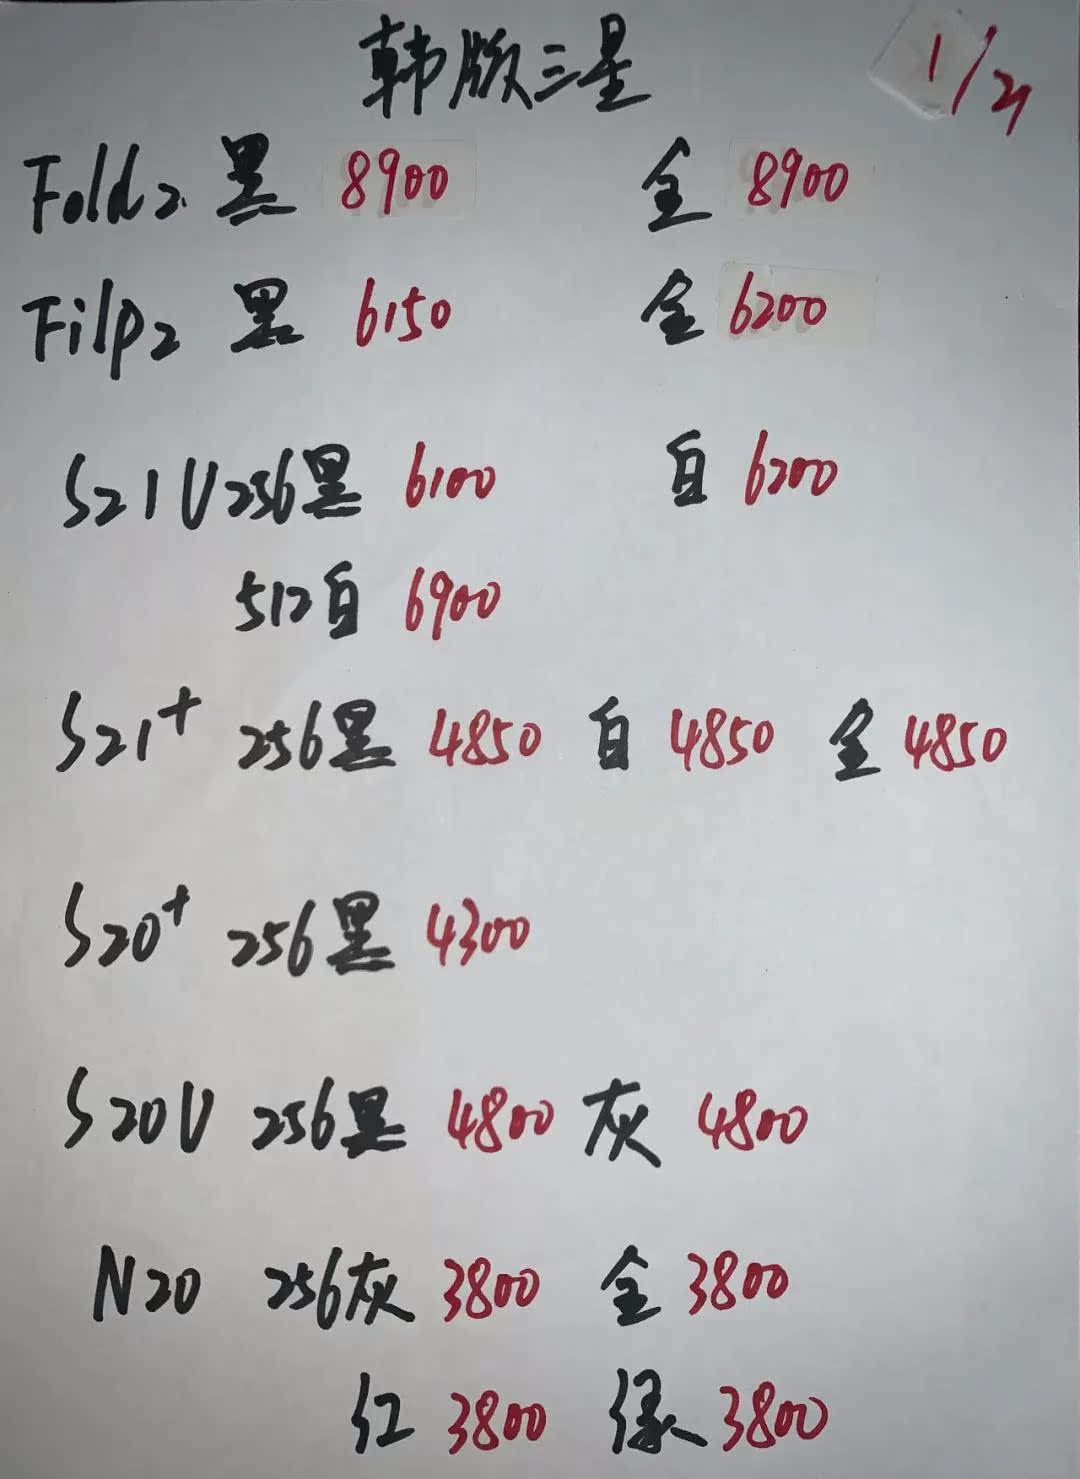 韩版三星 1/21
Fold2 黑 8900 金 8900
Filp2 黑 6150 金 6200
S21U 256黑 6100 白 6200
512白 6900
S21+ 256黑 4850 白 4850 金 4850
S20+ 256黑 4300
S20U 256黑 4800 灰 4800
N20 256灰 3800 金 3800
红 3800 绿 3800